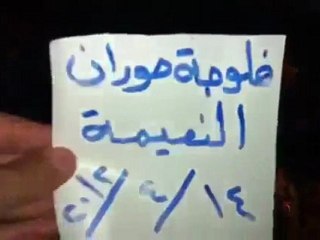 فلوجة حوران
النعيمة
١٤/٤/٢٠١٢